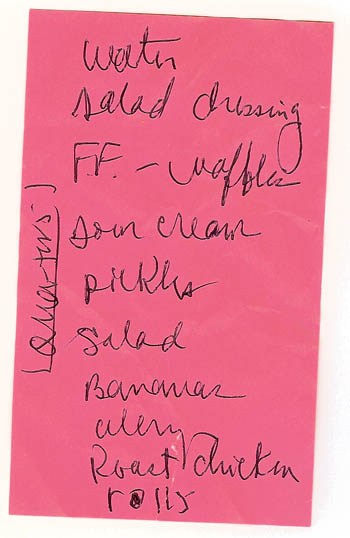 Water
salad dressing
F.F. - waffles
sour cream
pickles
salad
Bananas
celery
Roast chicken
rolls
(quarters)